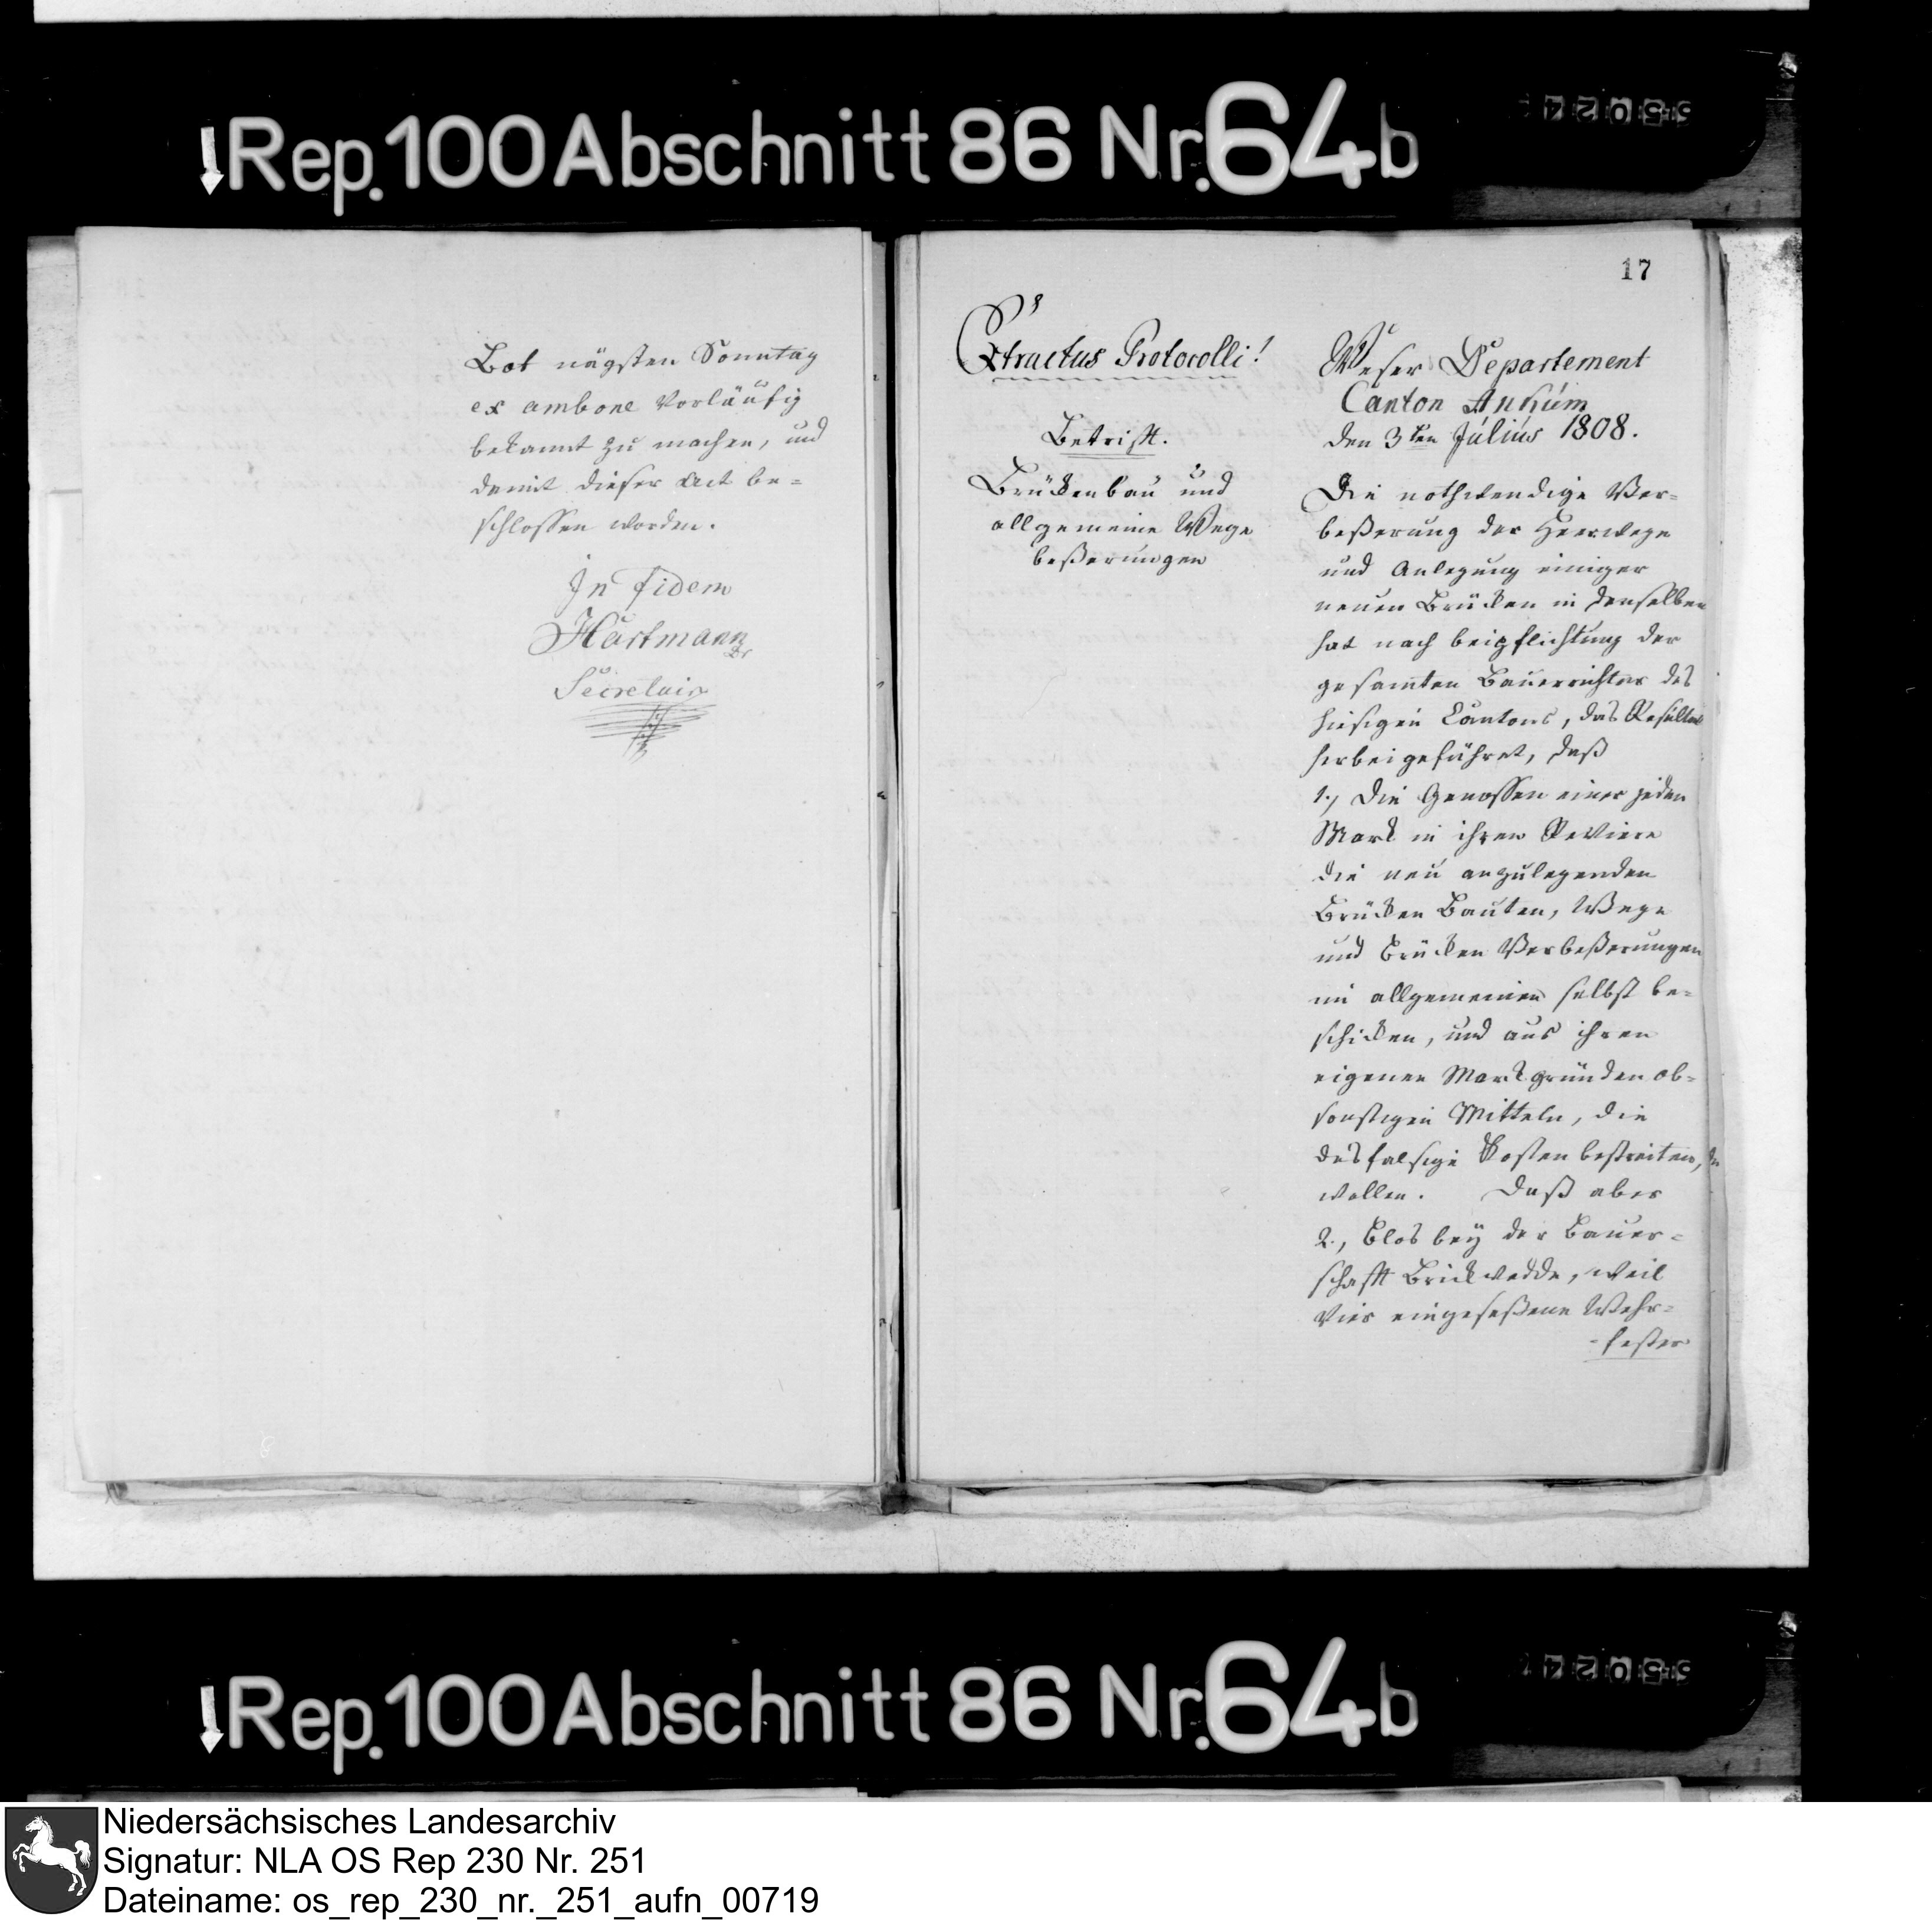 Rep. 100 Abschnitt 86 Nr. 64b
55024
Bot nägsten Sonntag
ex ambone vorläufig
bekannt zu machen, und
damit dieser Act be=
schlossen worden.
In Fidem
Hartmann
Dr
Secretair
17
Extractus Protocolli!
Betrifft.
Brückenbau und
allgemeine Wege
beßerungen
Weser Departement
Canton Ankum
den 3ten Julius 1808.
Die nothwendige Ver=
beßerung der Heerwege
und Anlegung einiger
neuen Brücken in denselben
hat nach beipflichtung der
gesamten Bauerrichter des
hiesigen Cantons, das Resultat
herbeigeführet, daß
1., Die Genossen einer jeden
Mark in ihren Reviere
die neu anzulegenden
Brücken Bauten, Wege
und Brücken Verbeßerungen
im allgemeinen selbst be=
schicken, und aus ihren
eigenen Markgründen ob=
sonstigen Mitteln, die
desfalsige Kosten bestreiten,
wollen. Daß aber
2., Blos bey der Bauer=
schafft Brickwedde, weil
vier eingeseßene Wehr=
-fester
Rep. 100 Abschnitt 86 Nr. 64b
55024
Niedersächsisches Landesarchiv
Signatur: NLA OS Rep 230 Nr. 251
Dateiname: os_rep_230_nr._251_aufn_00719